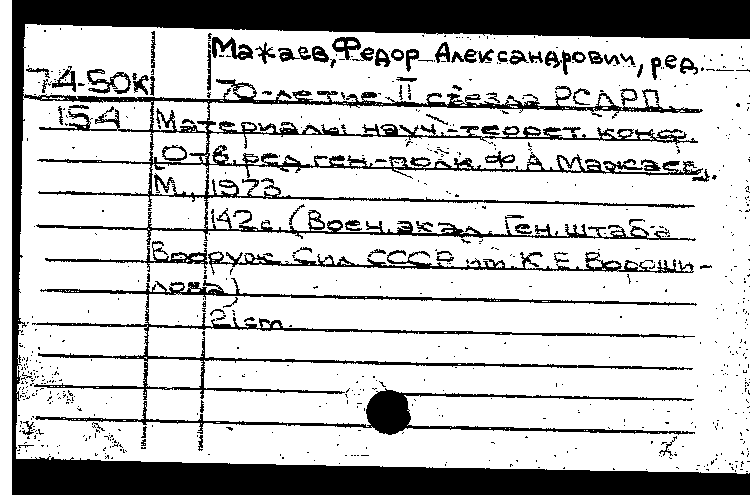 Мажаев, Федор Александрович, ред.
74-50к 70-летие II съезда РСДРП.
154 Материалы науч.-теорет. конф.
[Отв. ред. ген.-полк. Ф. А. Мажаев].
М., 1973.
142с. (Воен. акад. Ген. штаба
Вооруж. Сил СССР им. К. Е. Вороши-
лова)